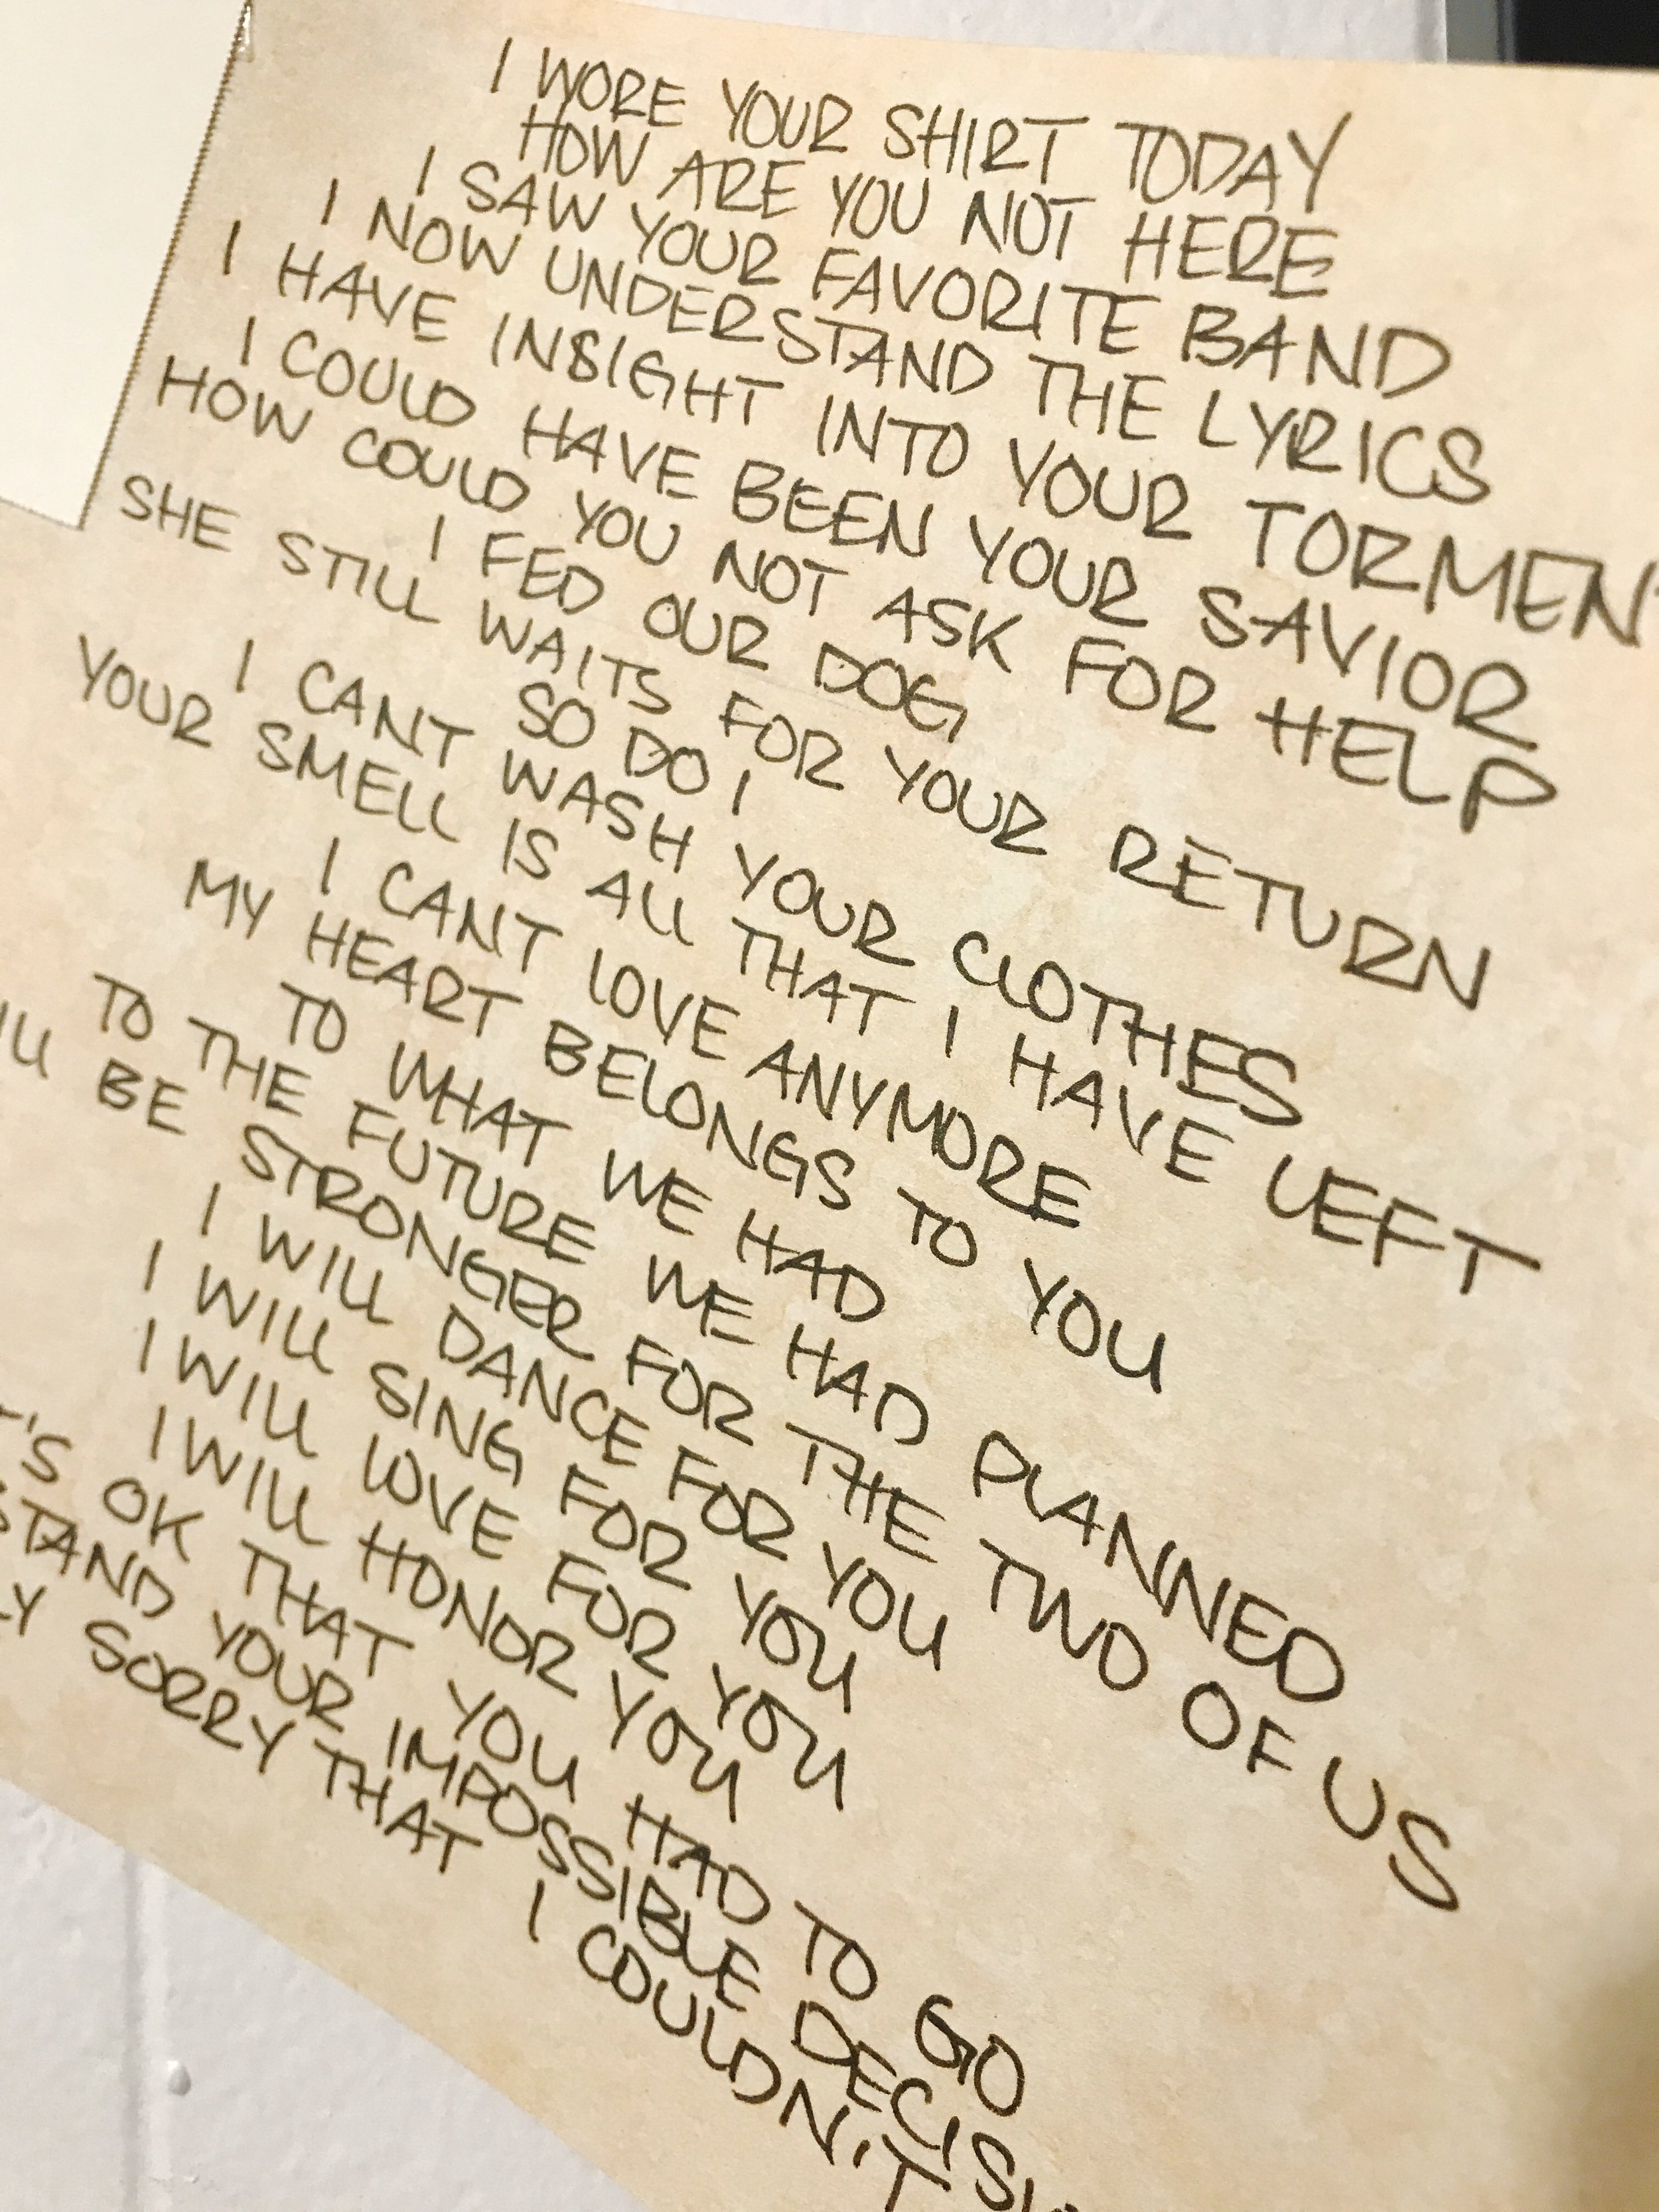 I WORE YOUR SHIRT TODAY
HOW ARE YOU NOT HERE
I SAW YOUR FAVORITE BAND
I NOW UNDERSTAND THE LYRICS
I HAVE INSIGHT INTO YOUR TORMENT
I COULD HAVE BEEN YOUR SAVIOR
HOW COULD YOU NOT ASK FOR HELP
I FED OUR DOG
SHE STILL WAITS FOR YOUR RETURN
SO DO I
I CANT WASH YOUR CLOTHES
YOUR SMELL IS ALL THAT I HAVE LEFT
I CANT LOVE ANYMORE
MY HEART BELONGS TO YOU
TO WHAT WE HAD
TO THE FUTURE WE HAD PLANNED
BE STRONGER FOR THE TWO OF US
I WILL DANCE FOR YOU
I WILL SING FOR YOU
I WILL LOVE FOR YOU
I WILL HONOR YOU
'S OK THAT YOU HAD TO GO
STAND YOUR IMPOSSIBLE DECIS
Y SORRY THAT I COULDN'T